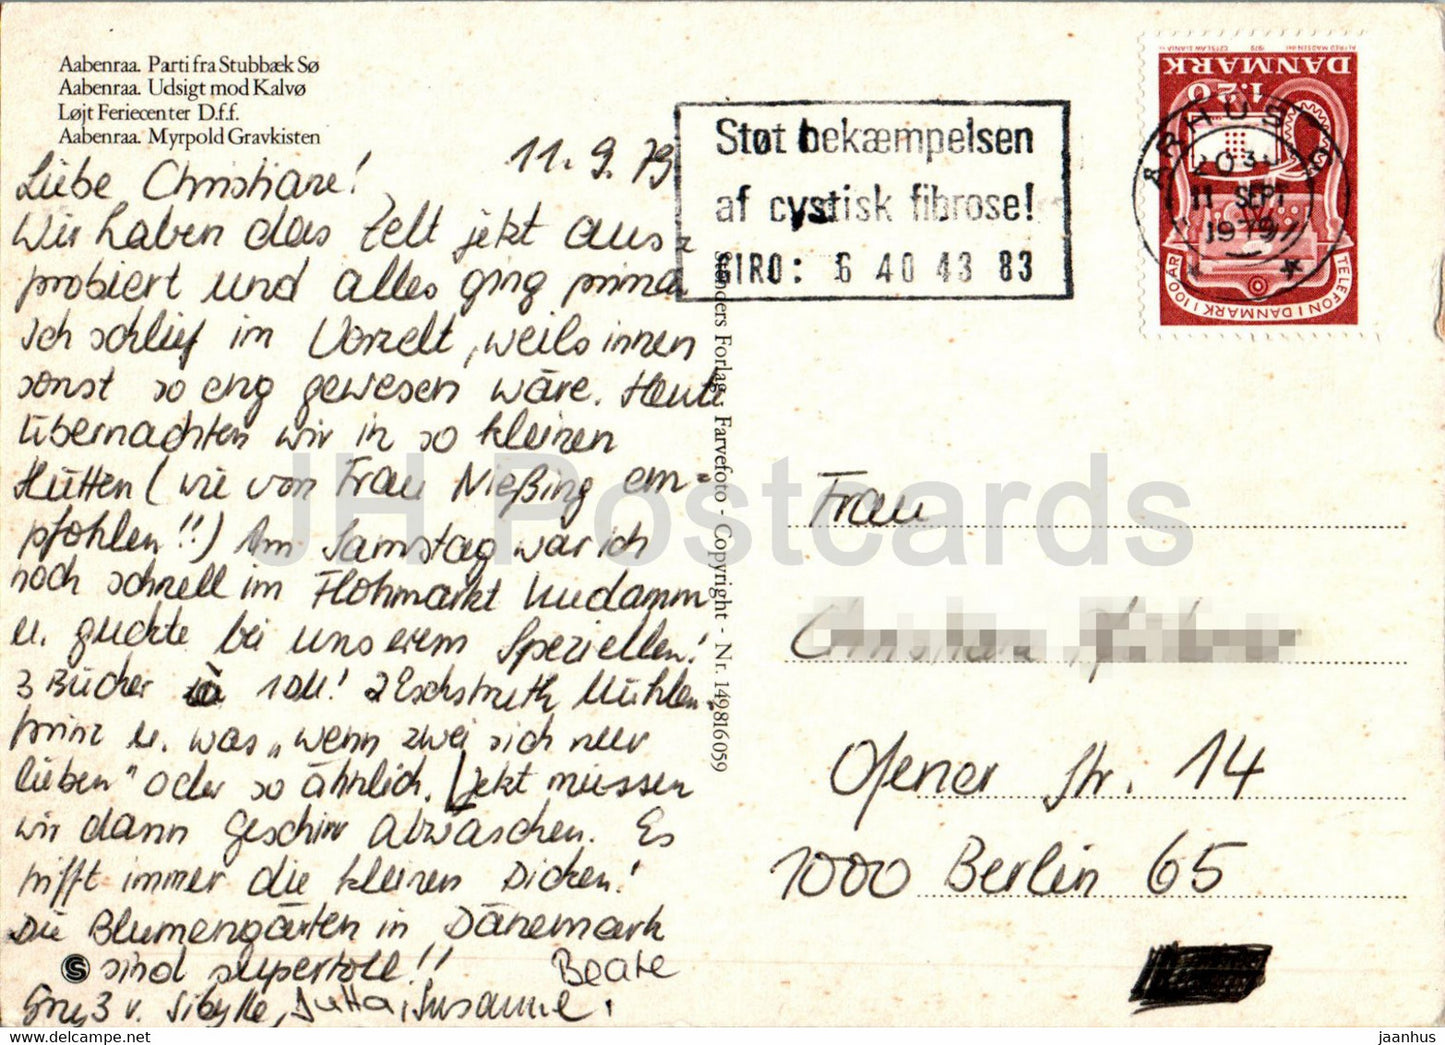 Aabenraa. Parti fra Stubbæk Sø
Aabenraa. Udsigt mod Kalvø
Løjt Feriecenter D.f.f.
Aabenraa. Myrpold Gravkisten
11. 9. 79
Liebe Christiane!
Wir haben das Zelt jetzt aus=
probiert und alles ging prima
Ich schlief im Vorzelt, weils innen
sonst so eng gewesen wäre. Heute
übernachten wir in so kleinen
Hütten (wie von Frau Nießing em=
pfohlen!!) Am Samstag war ich
noch schnell im Flohmarkt
u. guckte bei unserem Speziellen!
3 Bücher à 1 DM! 2 Eschstruth Mühlen=
prinz u. was „wenn zwei sich nur
lieben" oder so ähnlich. Jetzt müssen
wir dann Geschirr abwaschen. Es
trifft immer die kleinen Dicken!
Die Blumengärten in Dänemark
sind supertoll!! Beate
Gruß v. Sibylle, Jutta, Susanne.
Støt bekæmpelsen
af cystisk fibrose!
GIRO: 6 40 43 83
DANMARK
1.20
TELEFON I DANMARK I 100 ÅR
ALFRED MADSEN del. 1979 CZESLAW SLANIA sc.
ÅRHUS C
11 SEPT
1979
Stenders Forlag. Farvefoto - Copyright - Nr. 149816059
Frau
Ofener Str. 14
1000 Berlin 65
S
JH Postcards
https://jhpostcards.com
jaanhus